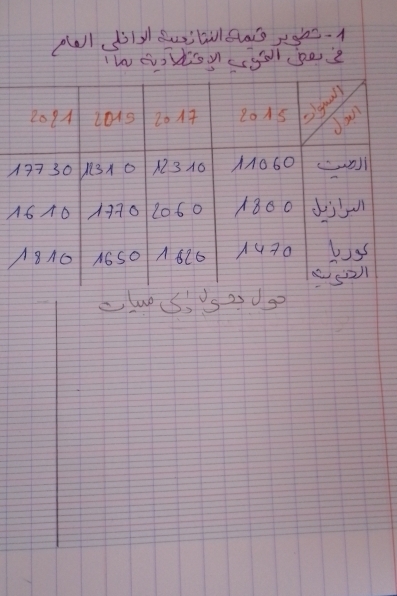 1- تطوير قيمة الناتج الداخلي العام
في بعض القوى الإقتصادية
السنوات 2015 2017 2019 2021
الدول
الصين 11060 12310 12310 17730
البرازيل 1800 2060 1770 1610
كوريا 1470 1620 1650 1810
الجنوبية
حول الجدول إلى مبيان